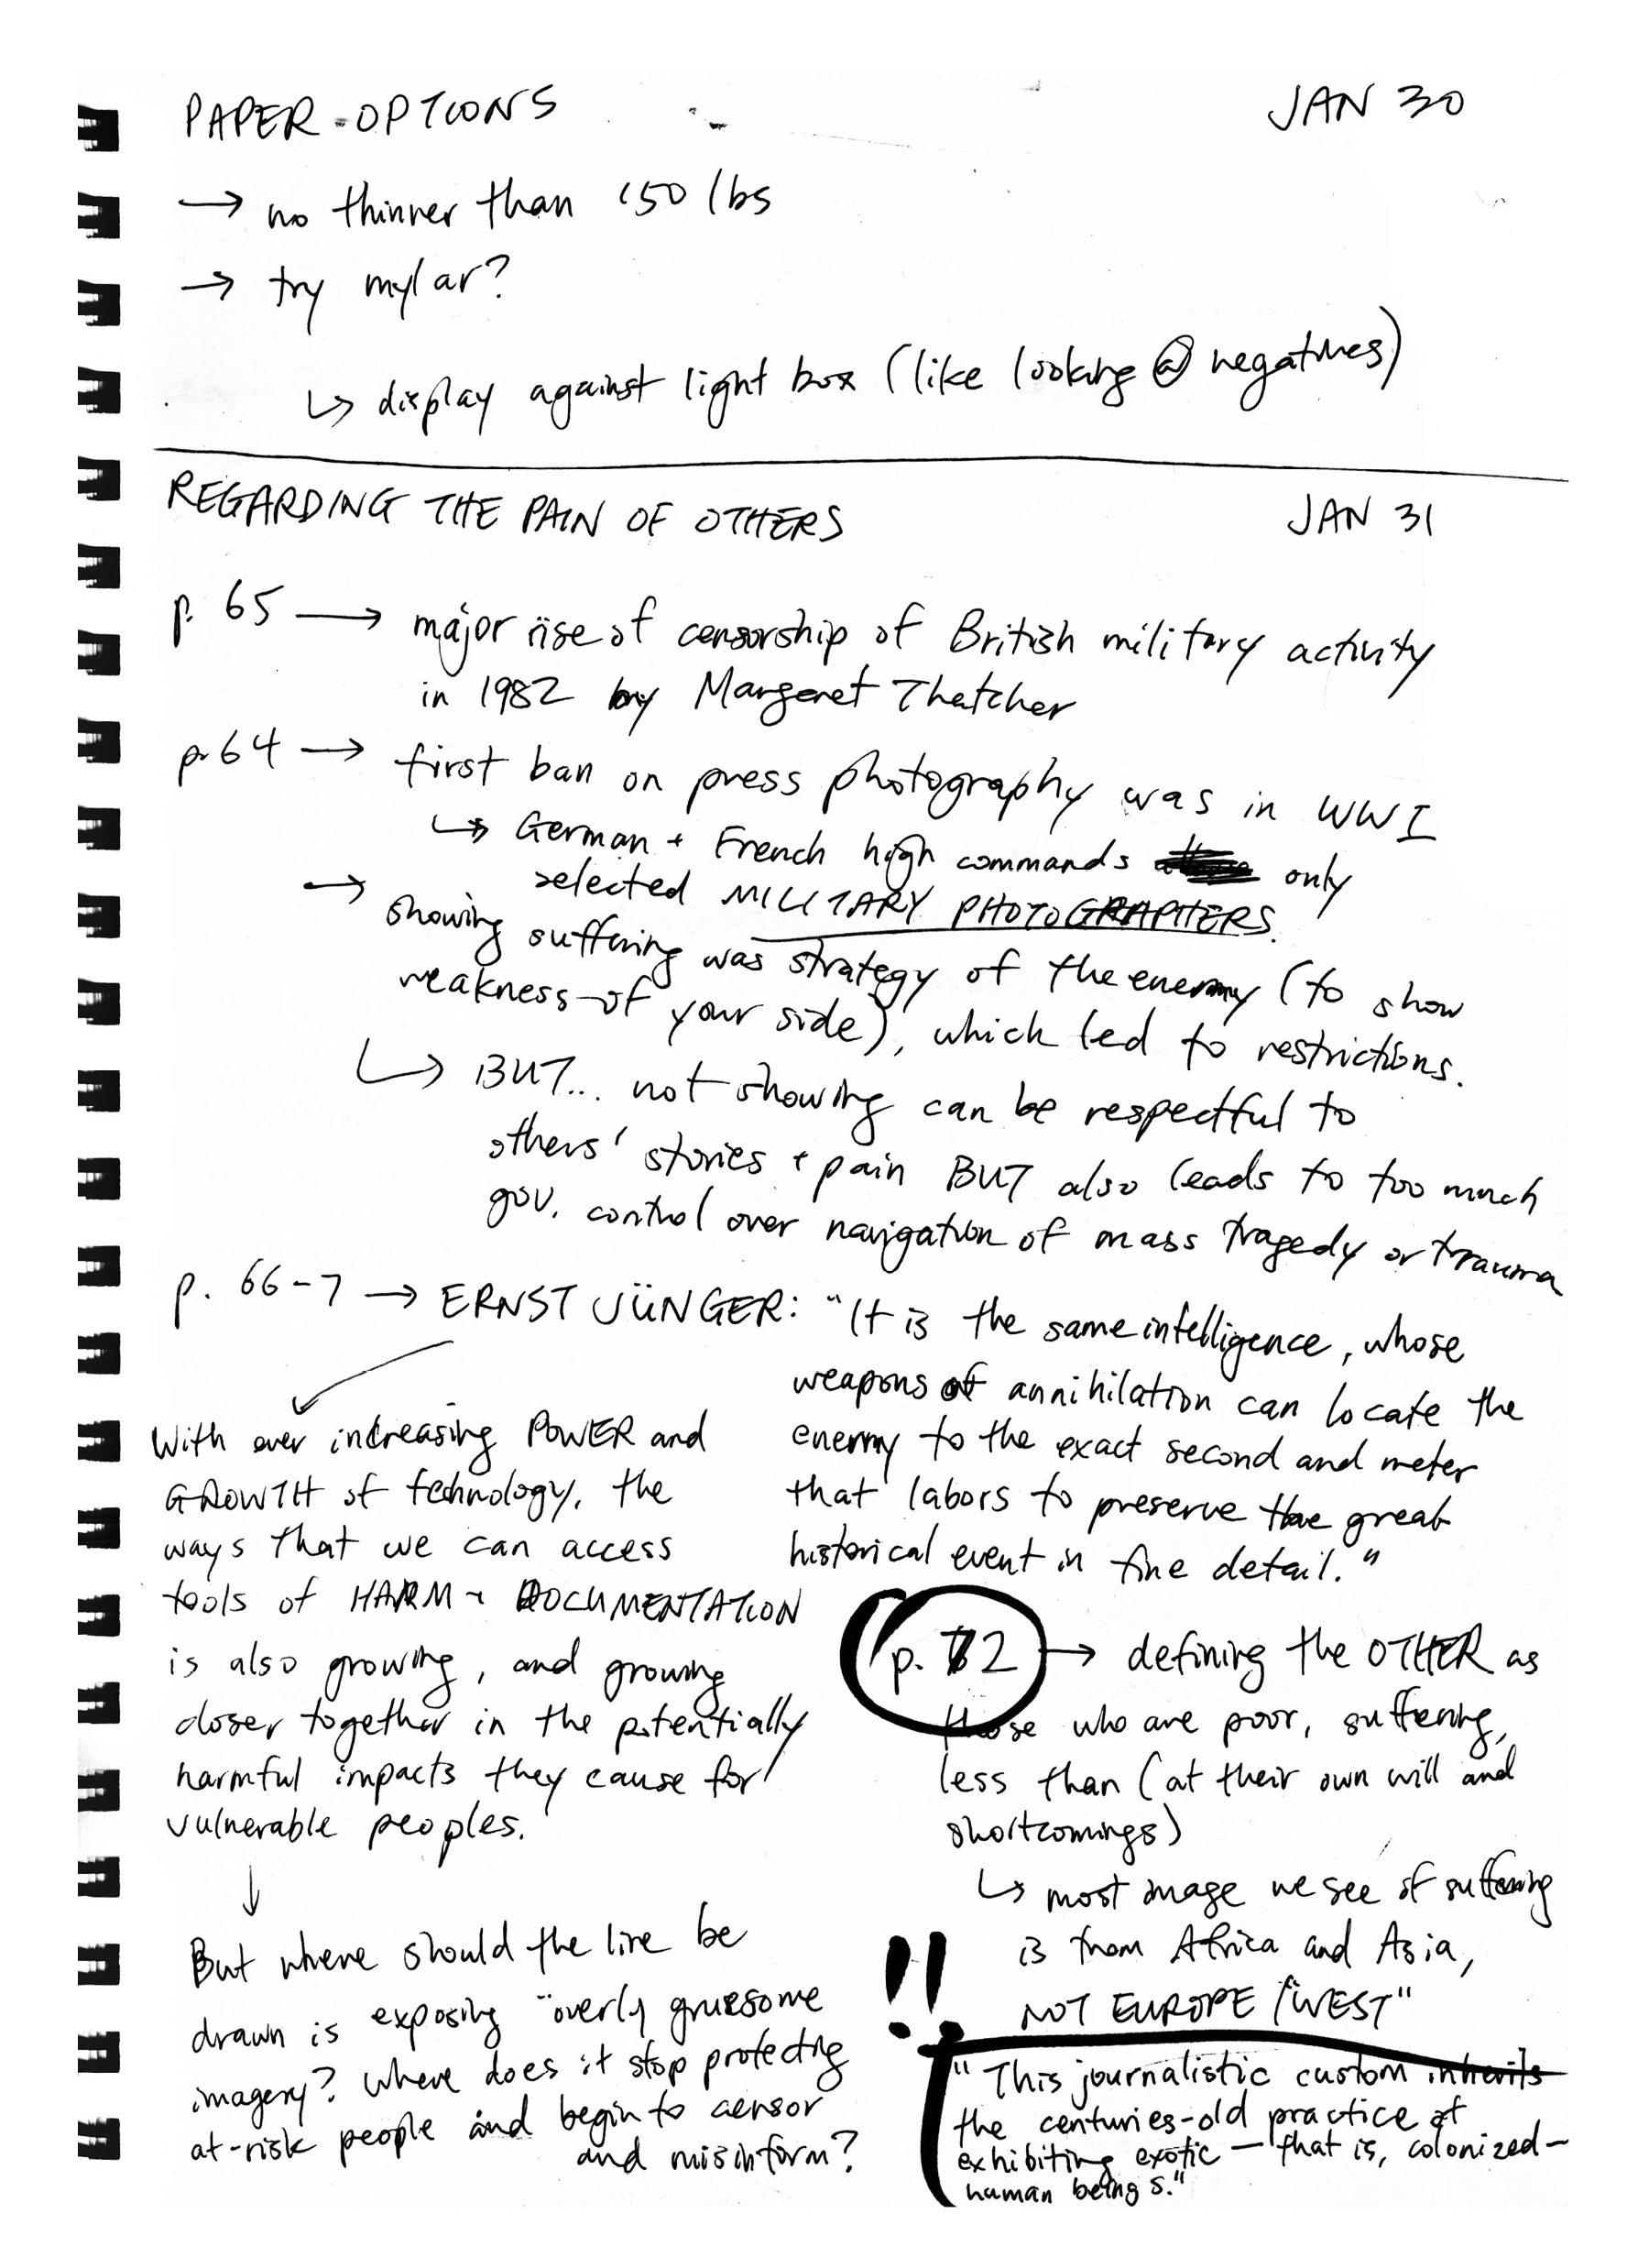 PAPER-OPTIONS JAN 30
→ no thinner than 150 lbs
→ try mylar?
↳ display against light box (like looking @ negatives)
REGARDING THE PAIN OF OTHERS JAN 31
p. 65 → major rise of censorship of British military activity
in 1982 by Margaret Thatcher
p. 64 → first ban on press photography was in WWI
↳ German + French high commands only
selected MILITARY PHOTOGRAPHERS.
→ showing suffering was strategy of the enemy (to show
weakness of your side), which led to restrictions.
↳ BUT... not showing can be respectful to
others' stories + pain BUT also leads to too much
gov. control over navigation of mass tragedy or trauma
p. 66-7 → ERNST JÜNGER: "It is the same intelligence, whose
weapons of annihilation can locate the
enemy to the exact second and meter
that labors to preserve the great
historical event in fine detail."
With ever increasing POWER and
GROWTH of technology, the
ways that we can access
tools of HARM + DOCUMENTATION
is also growing, and growing
closer together in the potentially
harmful impacts they cause for
vulnerable peoples.
↓
But where should the line be
drawn is exposing "overly gruesome
imagery? Where does it stop protecting
at-risk people and begin to censor
and misinform?
p. 72 → defining the OTHER as
those who are poor, suffering,
less than (at their own will and
shortcomings)
↳ most image we see of suffering
is from Africa and Asia,
!! NOT EUROPE/"WEST"
"This journalistic custom inherits
the centuries-old practice of
exhibiting exotic — that is, colonized—
human beings."